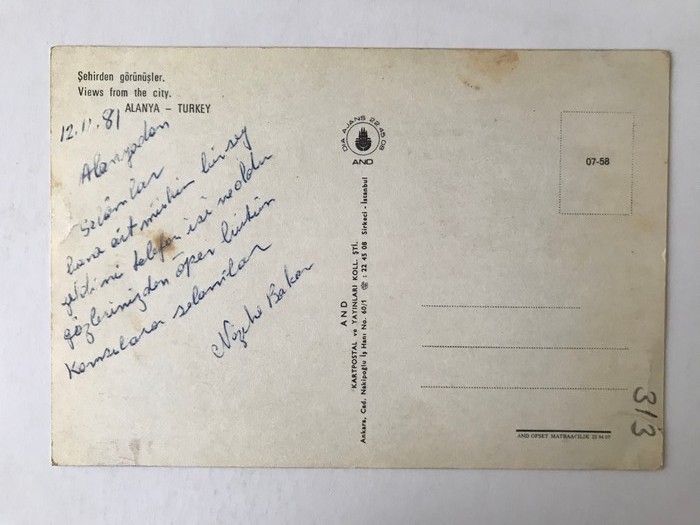 Şehirden görünüşler.
Views from the city.
ALANYA – TURKEY
12.11.81
Alanyadan
Selâmlar
bana ait mühim birşey
geldimi telefon isi ne oldu
gözlerinizden öper bütün
Komşulara selamlar
Nezihe Bakar
DIA AJANS 22 45 08
AND
AND
KARTPOSTAL ve YAYINLARI KOLL. ŞTİ.
Ankara, Cad. Nakipoğlu İş Hanı No. 60/1 ☎ : 22 45 08 Sirkeci - İstanbul
07-58
AND OFSET MATBAACILIK
313